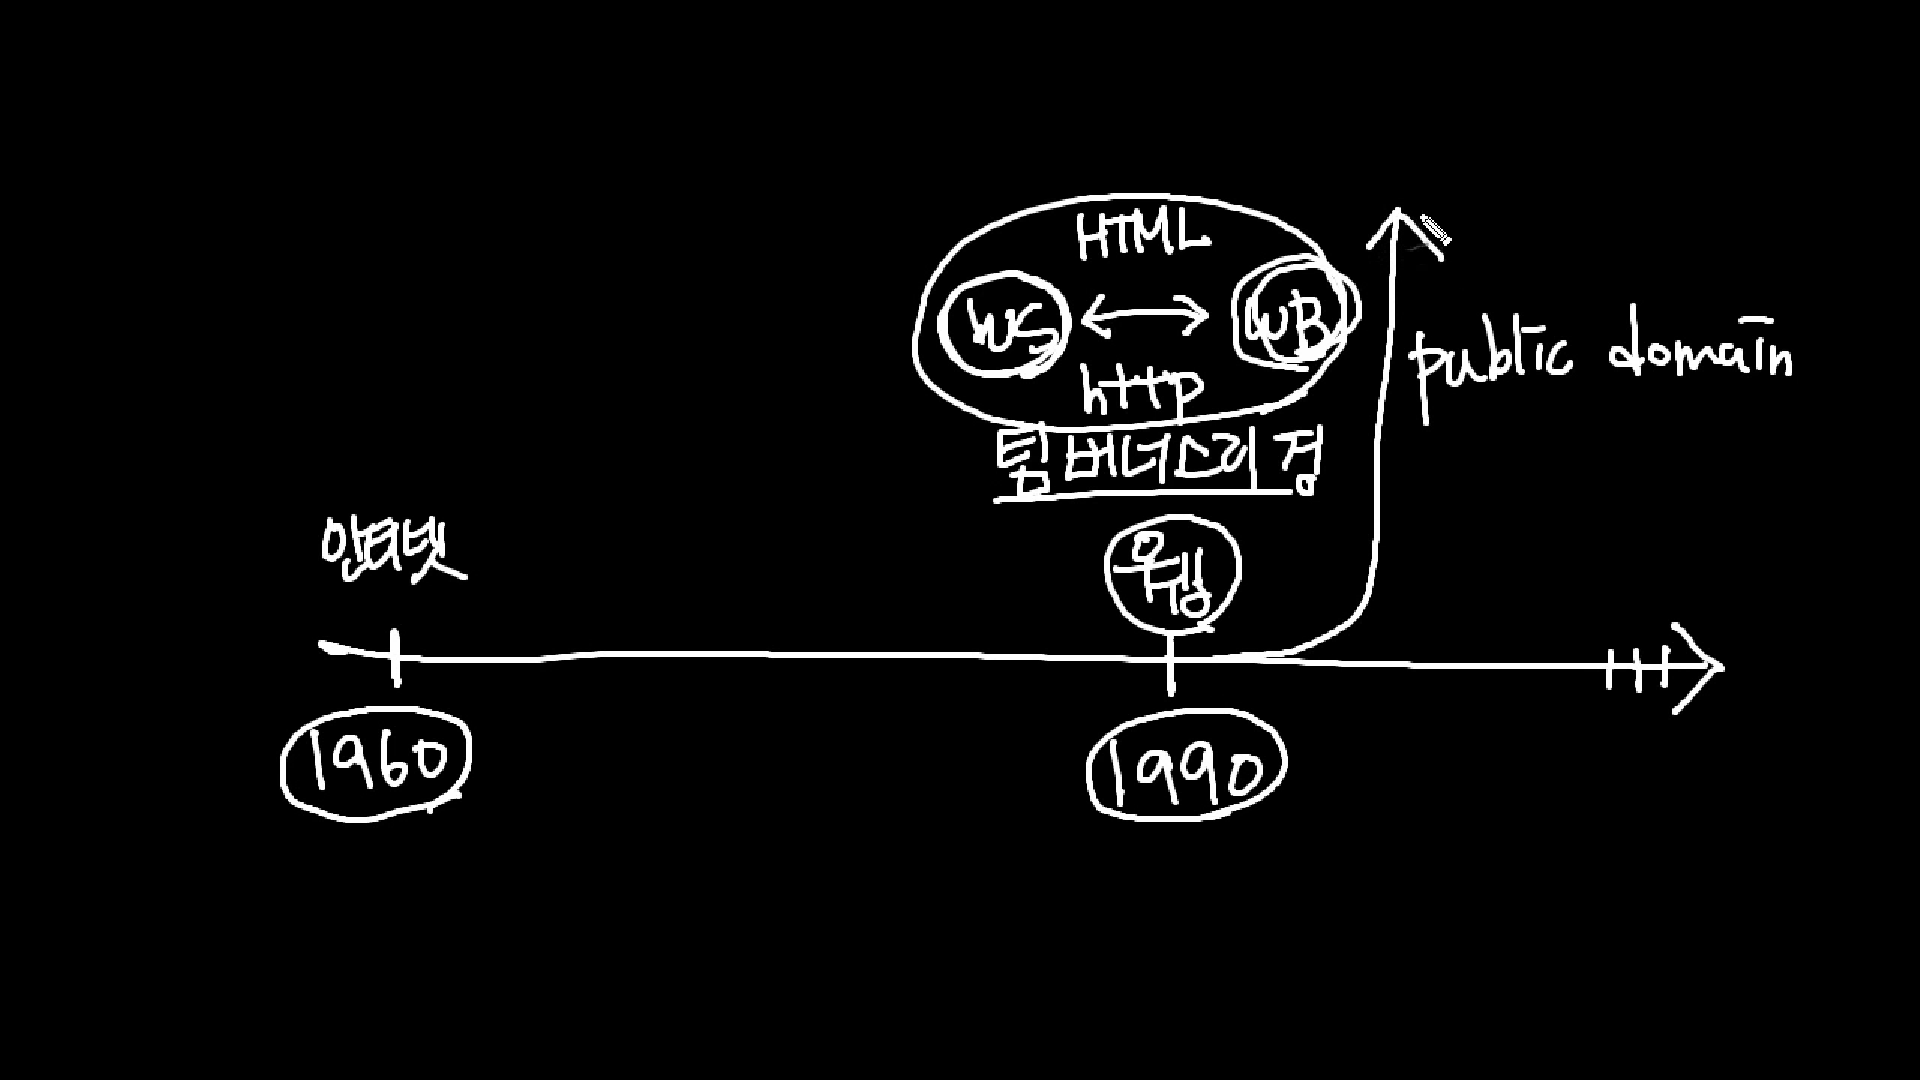 HTML
WS WB
http
팀버너스리 경
public domain
인터넷
웹
1960
1990